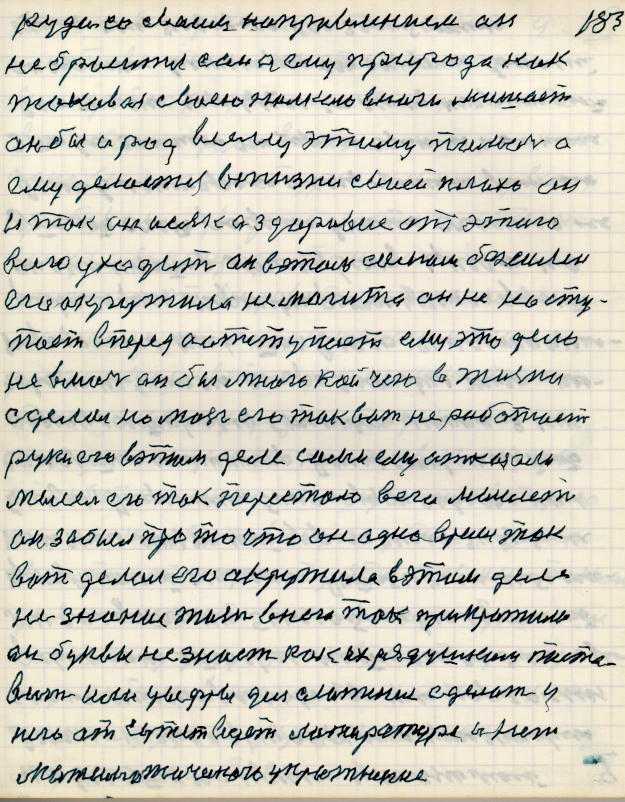 183
руда со своим направлением он
не бросится сам ему природа как
таковая своею
он бы и рад всему этому
ему делается в жизни своей плохо он
и так онасяк а здоровие от этого
всего уходит он вэтом самом безсилен
его окружила он не насту-
пает вперед а отступает ему это дело
не в мочь он бы много кой чего в жизни
сделал но мозг его так вот не работает
руки его вэтом деле сами ему отказали
мысел его так перестала
он забыл про то что он одно время так
вот делал его окружила вэтом деле
не знание жизнь в нем так прикратила
он буквы не знает как их рядушком поста-
вит или цыфры для сложния сделат у
него отсутствует литиратура и нет
математического упражнение